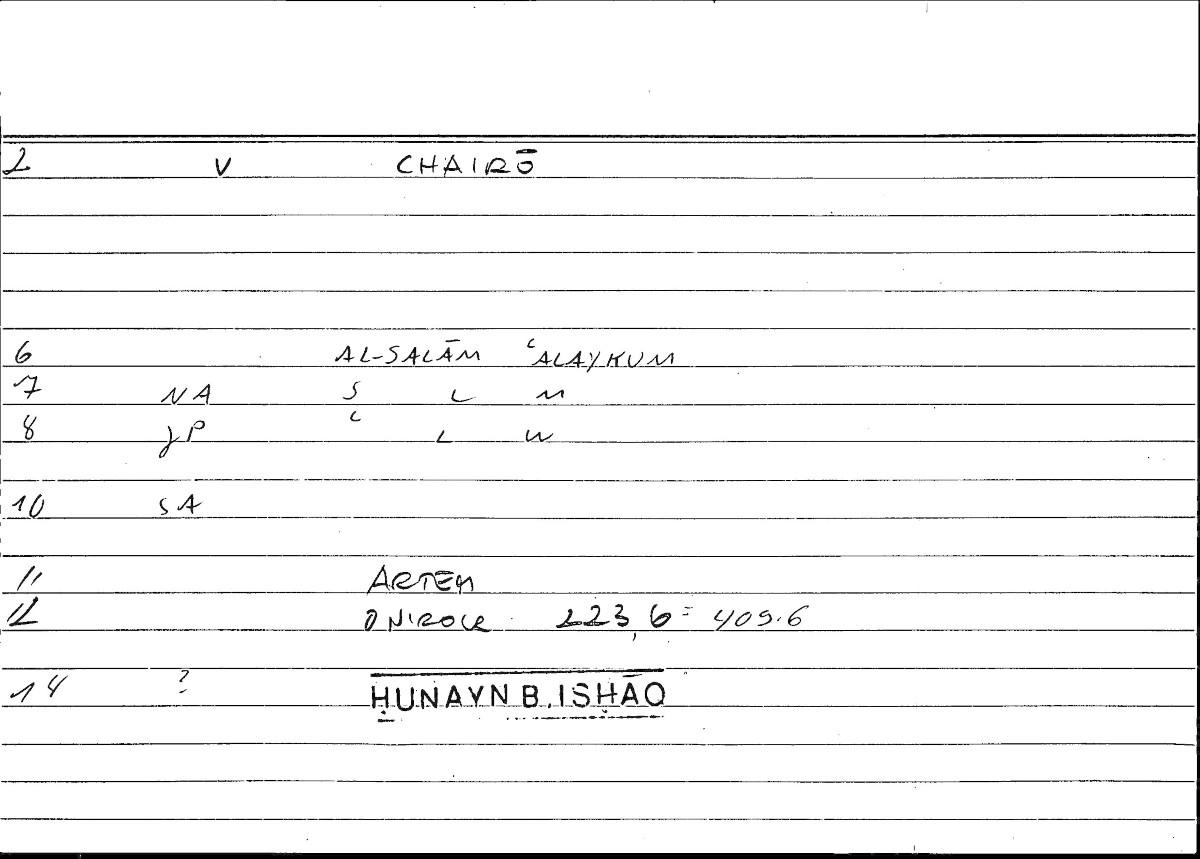 2 V CHAIRŌ
6 AL-SALĀM ʿALAYKUM
7 NA S L M
8 JP ʿ L W
10 SA
11 ARTEM
12 ONIROCR. 223,6 = 409.6
14 ? ḤUNAYN B. ISḤĀQ